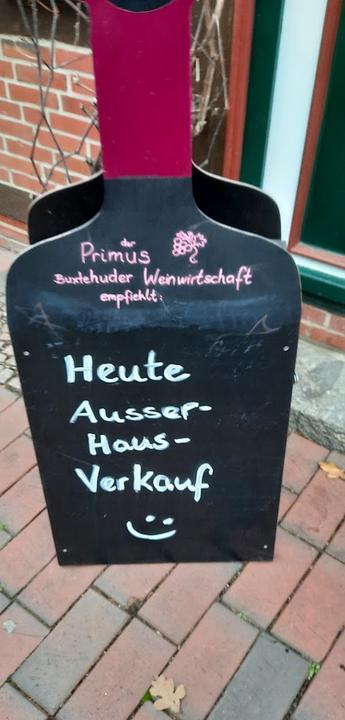 der
Primus
Buxtehuder Weinwirtschaft
empfiehlt:
Heute
Ausser-
Haus-
Verkauf